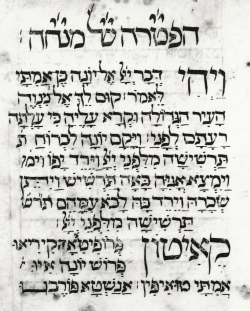 הפטרה של מנחה
ויהי דבר ייי אל יונה בן אמתי
לאמר: קום לך אל נינוה
העיר הגדולה וקרא עליה כי עלתה
רעתם לפני: ויקם יונה לברוח
תרשישה מלפני ייי וירד יפו
וימצא אניה באה תרשיש ויתן
שכרה וירד בה לבא עמהם
תרשישה מלפני ייי
קאיטון
פרוש יונה
אמתי